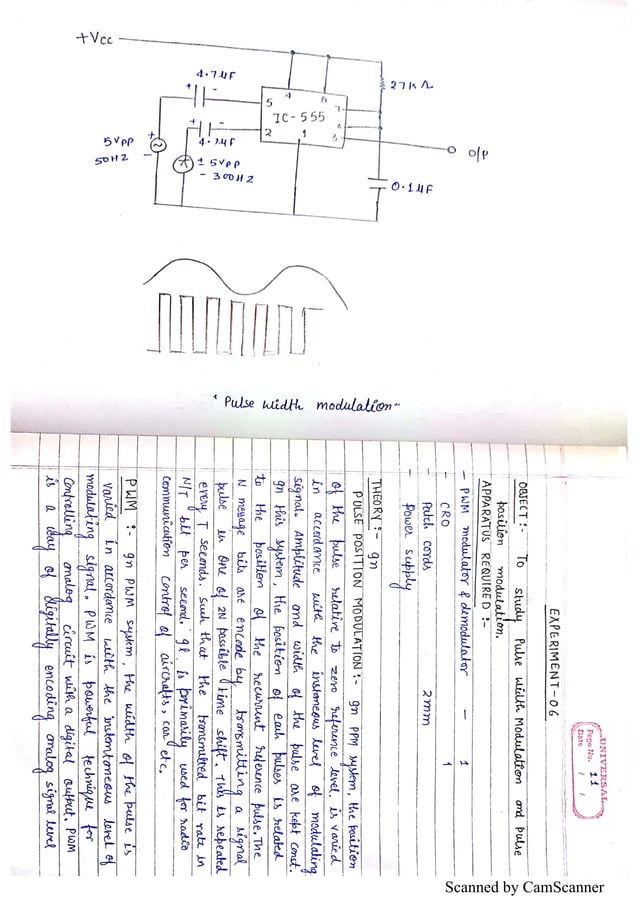 +Vcc
4.7µF
+ -
5 4 8 7
IC-555
6
2 1 3
27KΩ
o/p
+ -
4.7µF
5VPP
50HZ
+
-
± 5VPP
- 300HZ
0.1µF
" Pulse width modulation"
UNIVERSAL
Page No. 11
Date / /
EXPERIMENT-06
OBJECT:- To study Pulse Width Modulation and Pulse
position modulation.
APPARATUS REQUIRED :-
- PWM modulator & demodulator - 1
- CRO 1
- Patch cords 2mm
- Power supply
THEORY:- In
PULSE POSITION MODULATION:- In PPM system, the position
of the pulse relative to zero reference level. is varied
in accordance with the instaneous level of modulating
signal. Amplitude and width of the pulse are kept const.
In this system, the position of each pulses is related
to the position of the recurrent reference pulse. The
N message bits are encode by transmitting a signal
pulse in one of 2N possible time shift. This is repeated
every T seconds. Such that the transmitted bit rate in
N/T bit per second. It is primarily used for radio
communication control of aircrafts, car etc.
PWM :- In PWM system, the width of the pulse is
varied in accordance with the instantoneous level of
modulating signal. PWM is powerful technique for
controlling analog circuit with a digital output. PWM
is a way of digitally encoding analog signal level
Scanned by CamScanner